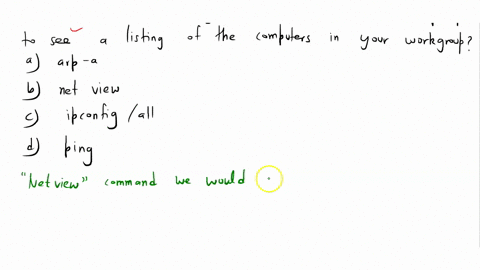 to see a listing of the computers in your workgroup?
a) arp -a
b) net view
c) ipconfig /all
d) ping
"Net view" command we would